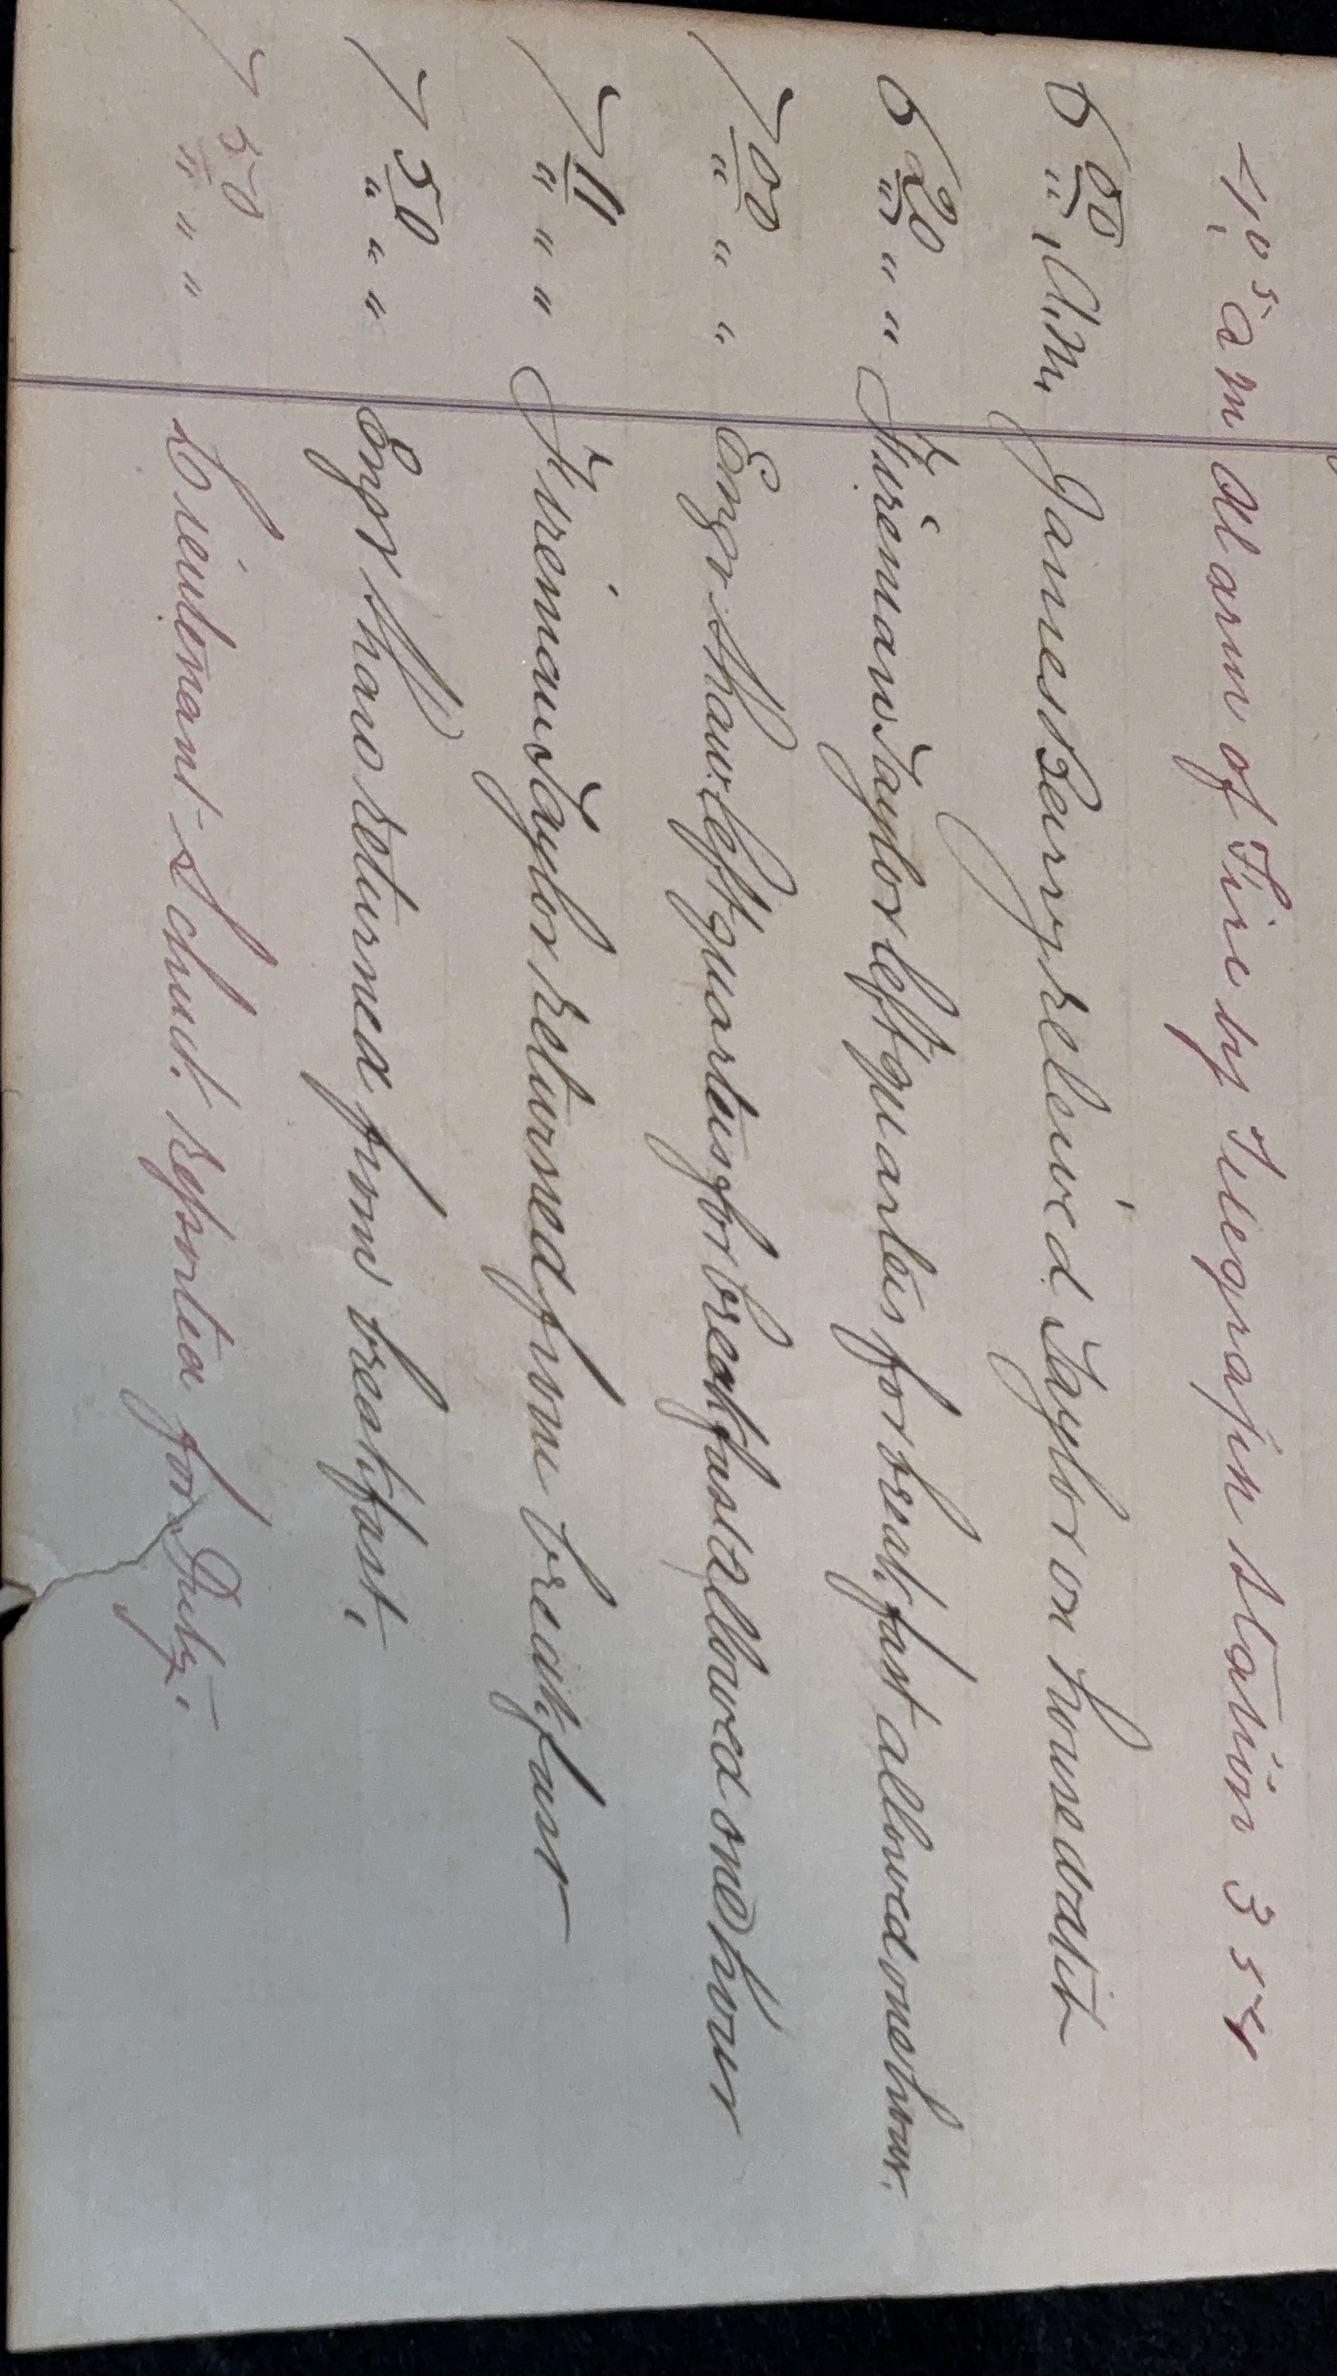 4.05 am Alarm of Fire by Telegraph Station 354
6 00 A.M. James Beury relieved Taylor on housewatch
6 20 " " " Fireman Taylor left quarters for breakfast allowed one hour.
7 00 " " " Engr. Shaw left quarters for breakfast allowed one hour
7 11 " " " Fireman Taylor returned from breakfast
7 50 " " " Engr Shaw returned from breakfast.
7 50 " " " Lieutenant reported for Duty.